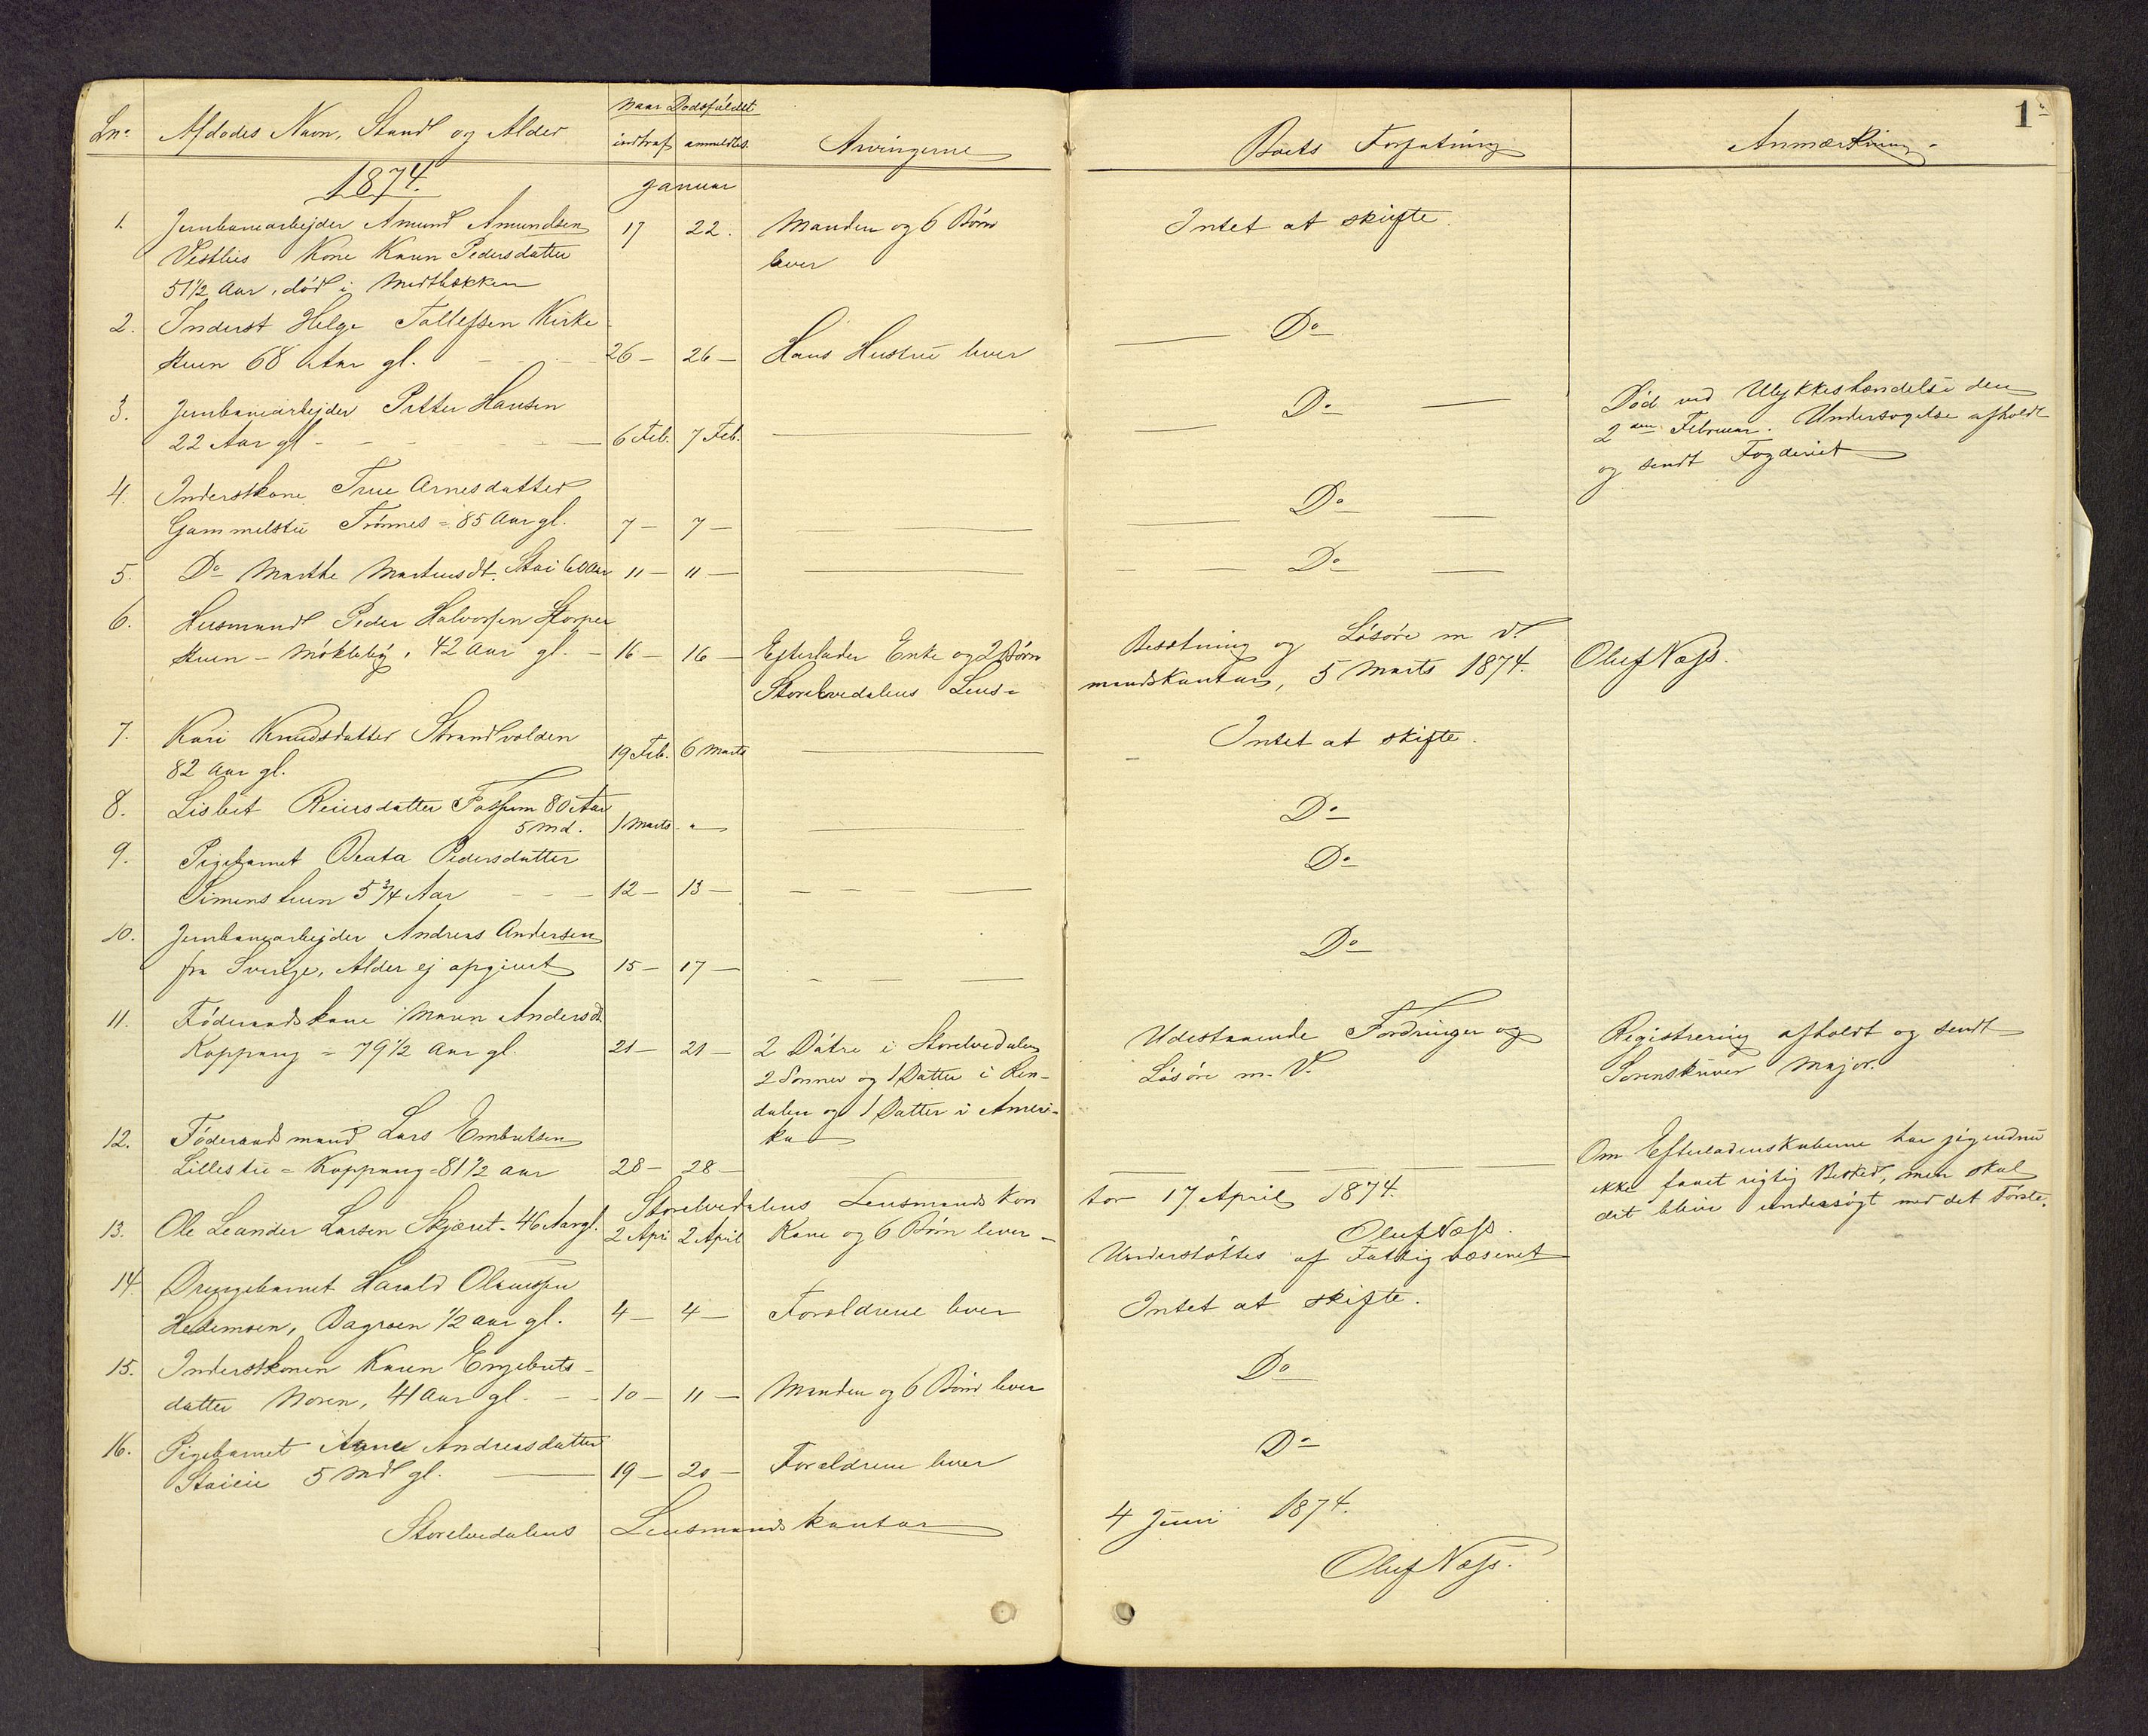 1a
Lno. Afdødes Navn, Stand og Alder Naar Dødsfaldet indtraf anmeldtes Arvingerne Boets Forfatning Anmærkning
1874. Januar
1. Jernbanearbejder Amund Amundsen 17 22. Manden og 6 Børn Intet at skifte.
Vestbies Kone Karen Pedersdatter lever
51½ Aar, død i Midtbækken
2. Inderst Helge Tollefsen Kirke- Do
stuen 68 Aar gl. 26 — 26 — Hans Hustru lever
3. Jernbanearbejder Petter Hansen Do Død ved Ulykkeshændelse den
22 Aar gl — 6 Feb. 7 Feb. 2den Februar. Undersøgelse afholdt
og sendt Fogderiet
4. Inderstkone True Arnesdatter Do
Gammelstu Trønnes = 85 Aar gl. 7 — 7 —
5. Do Marthe Martinsdt. Stai 60 Aar 11 — 11 — Do
6. Husmand Peder Halvorsen Storper Besætning og Løsøre m. V.
stuen - Møkleby, 42 Aar gl. — 16 — 16 — Efterlader Enke og 2 Børn
Storelvedalens Lens- mandskontor, 5 Marts 1874. Oluf Næss.
7. Kari Knudsdatter Strandvolden Intet at skifte.
82 Aar gl. 19 Feb. 6 Marts
8. Lisbet Reiersdatter Fossum 80 Aar Do
5 Md. 1 Marts "
9. Pigebarnet Beata Pedersdatter Do
Simenstuen 5¾ Aar 12 — 13 —
10. Jernbanearbejder Andreas Andersen Do
fra Sverige, Alder ej opgivet 15 — 17 —
11. Føderaadskone Maren Andersdt. Udestaaende Fordringer og Registrering afholdt og sendt
Koppang = 79½ Aar gl. 21 — 21 — 2 Døtre i Storelvedalen Løsøre m. V. Sorenskriver Major.
2 Sønner og 1 Datter i Ren-
dalen og 1 Datter i Ameri-
ka
12. Føderaadsmand Lars Embretsen Om Efterladenskaberne har jeg endnu
Lillestu = Koppang = 81½ Aar 28 — 28 — ikke faaet rigtig Besked, men skal
Storelvedalens Lensmandskon tor 17 April 1874. det blive undersøgt med det første.
Oluf Næss.
13. Ole Leander Larsen Skjæret - 46 Aar gl. 2 Apr 2 April Kone og 6 Børn lever — Understøttes af Fattigvæsenet
14. Drengebarnet Harald Olaussen
Hedemoen, Bagroen ½ Aar gl. 4 — 4 — Forældrene lever Intet at skifte.
15. Inderstkonen Karen Engebrets- Do
datter Moren, 41 Aar gl. — 10 — 11 — Manden og 6 Børn lever
16. Pigebarnet Agne Andreasdatter Do
Staieie 5 Md gl. — 19 — 20 — Forældrene lever
Storelvedalens Lensmandskontor 4 Juni 1874.
Oluf Næss.